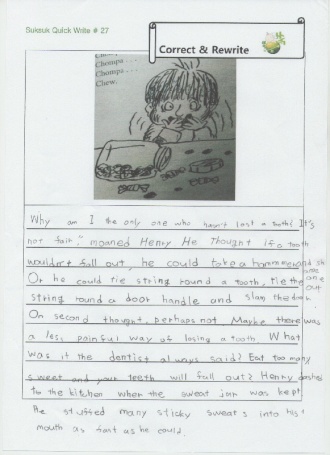 Suksuk Quick Write # 27
Correct & Rewrite
Chomps . . .
Chomps . . .
Chew.
Why am I the only one who hasn't lost a tooth! It's
not fair," moaned Henry He thought if a tooth
wouldn't fall out, he could take a hammer and
Or he could tie string round a tooth, tie the one
string round a door handle and slam the door.
On second thought, perhaps not Maybe there was
a less painful way of losing a tooth. What
was it the dentist always said? Eat too many
sweet and your teeth will fall out? Henry dashed
to the kitchen when the sweat jar was kept
He stuffed many sticky sweats into his
mouth as fast as he could.